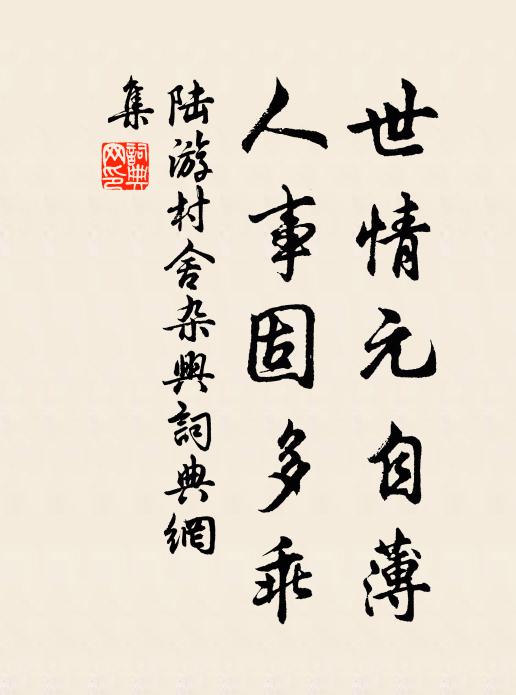 世情元自薄
人事固多乖
陆游村舍杂兴詞典網
集
詞典
网印